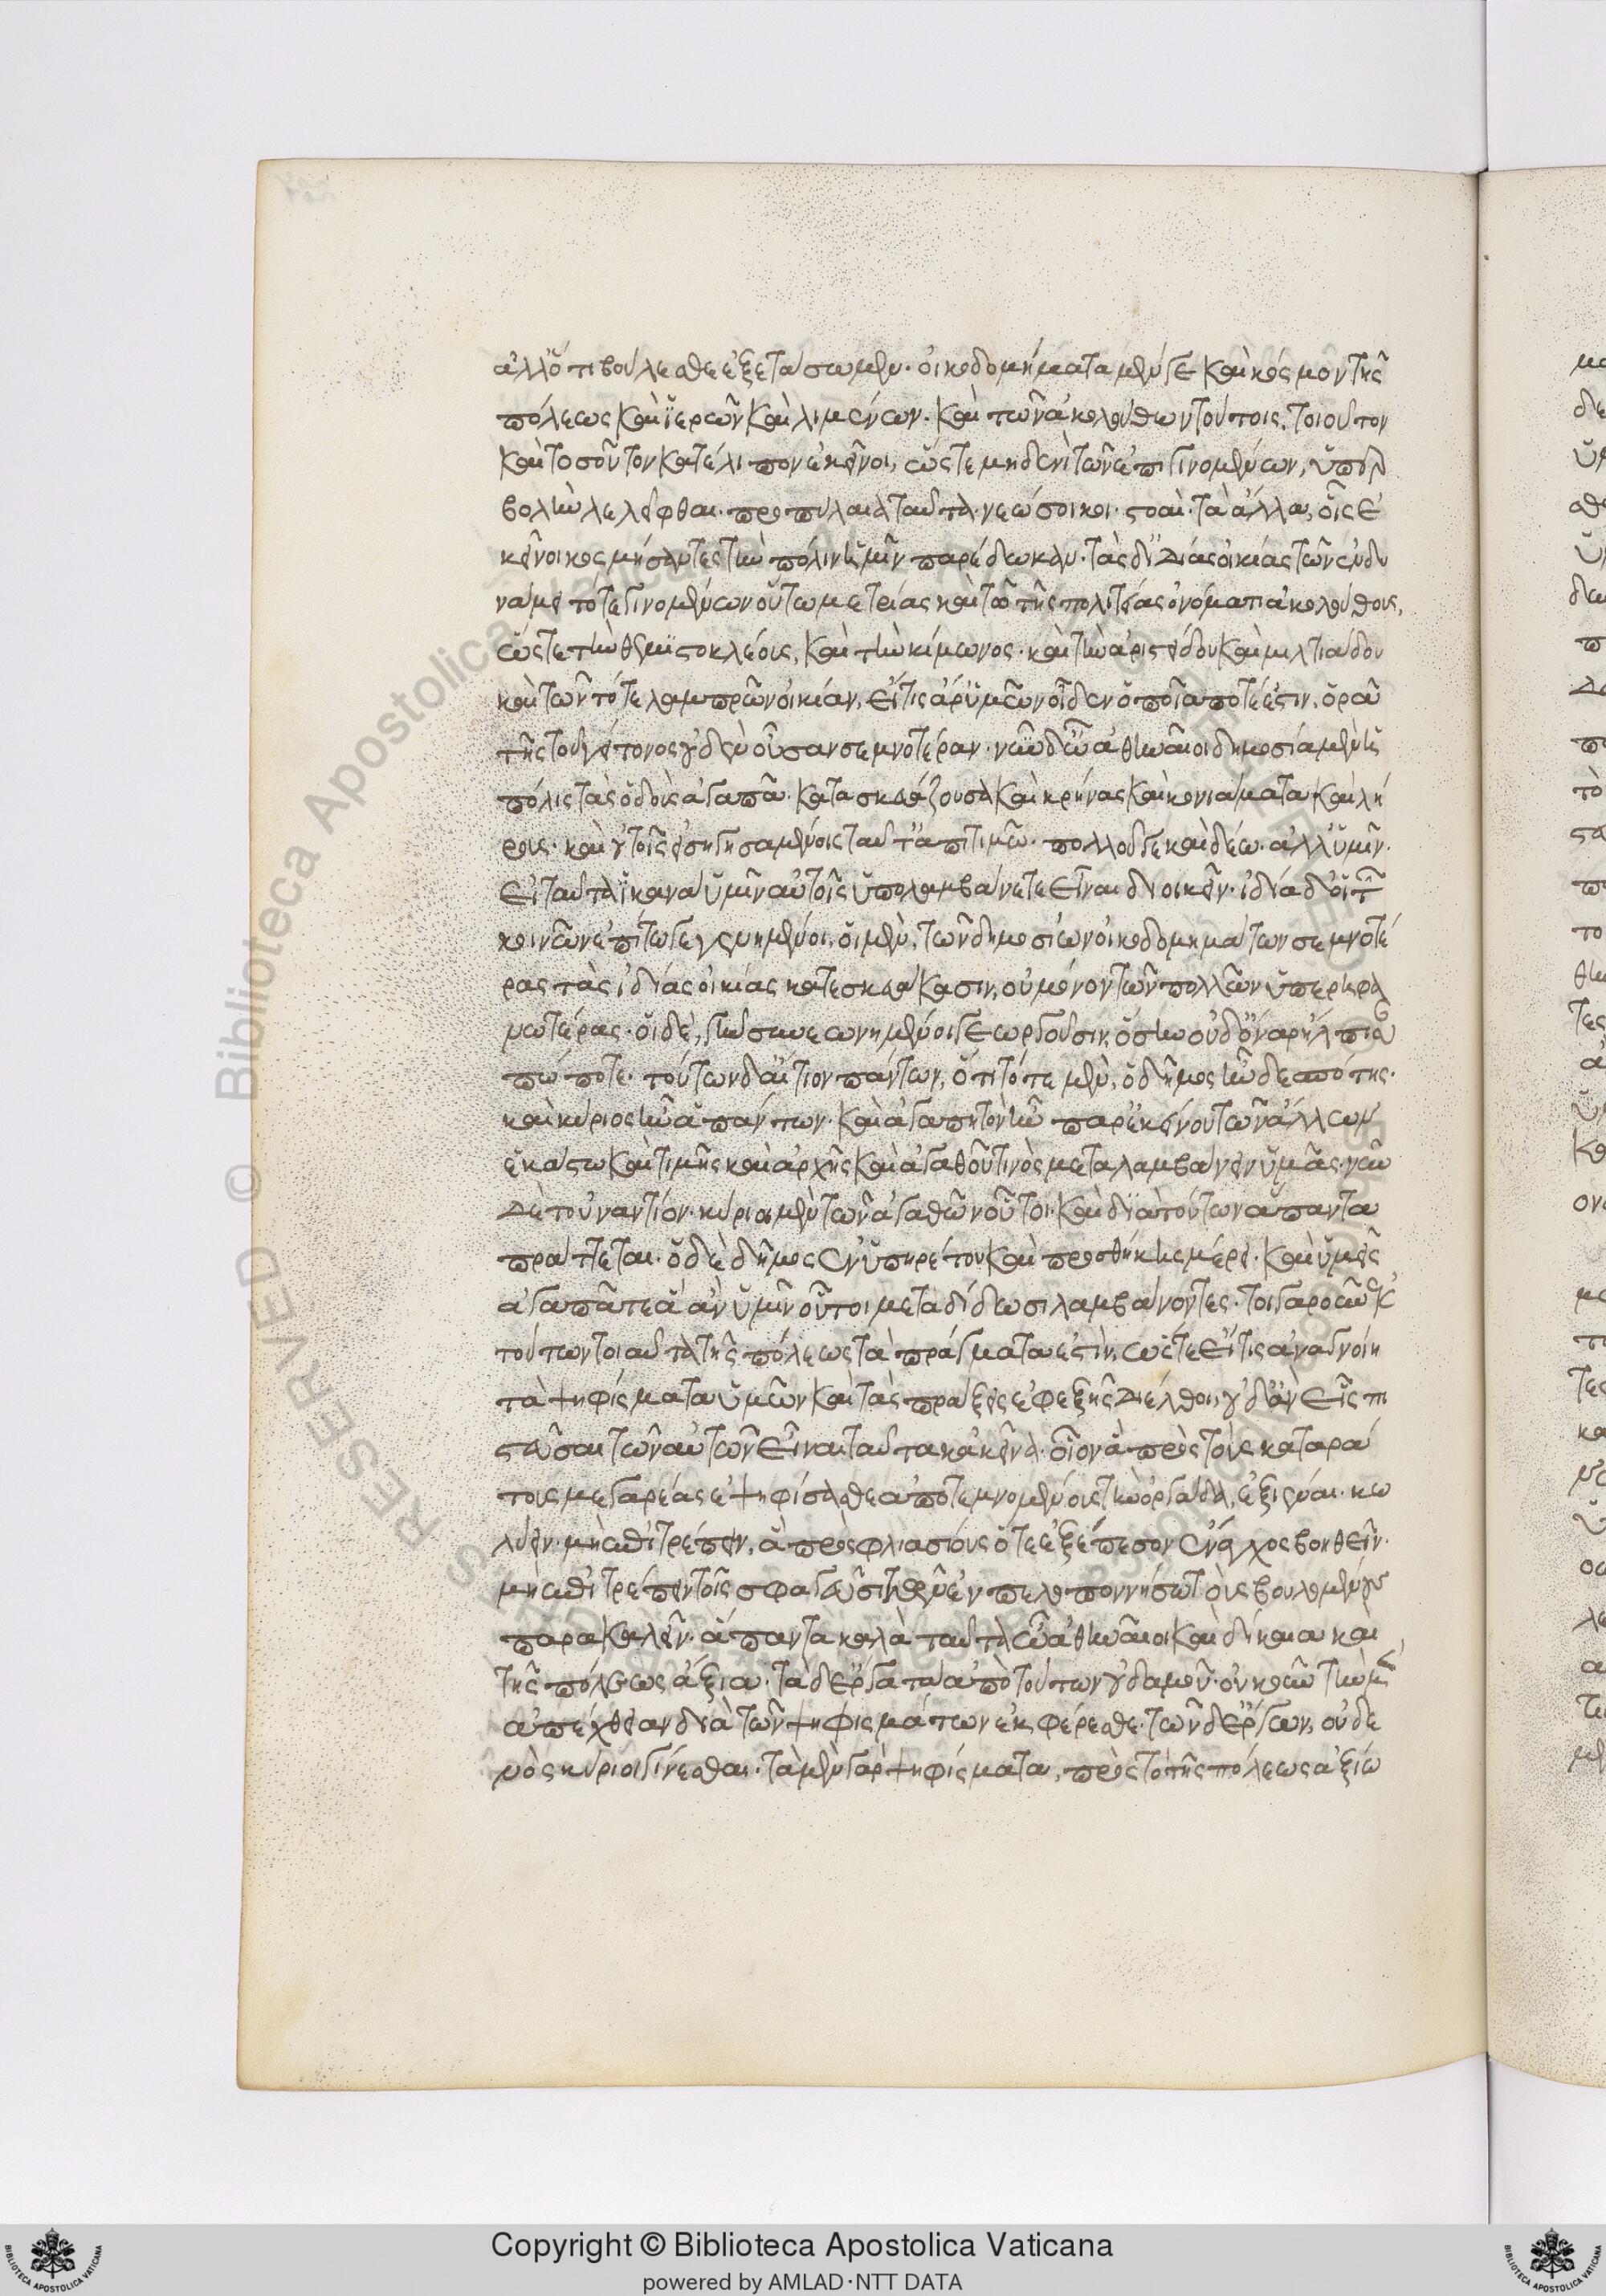 ἀλλ' ὅ τι βούλεσθε ἐξετάσωμεν. οἰκοδομήματα μέν γε καὶ κόσμον τῆς
πόλεως καὶ ἱερῶν καὶ λιμένων. καὶ τῶν ἀκολούθων τούτοις, τοιοῦτον
καὶ τοσοῦτον κατέλιπον ἐκεῖνοι, ὥστε μηδενὶ τῶν ἐπιγινομένων, ὑπερ
βολὴν λελεῖφθαι. προπύλαια ταῦτα. νεώσοικοι. στοαὶ. τὰ ἄλλα, οἷς ἐ
κεῖνοι κοσμήσαντες τὴν πόλιν ἡμῖν παρέδωκαν. τὰς δ' ἰδίας οἰκίας τῶν ἐν δυ
νάμει τότε γινομένων οὕτω μετρίας καὶ τῷ τῆς πολιτείας ὀνόματι ἀκολούθους,
ὥστε τὴν θεμιστοκλέους, καὶ τὴν κίμωνος. καὶ τὴν ἀριστείδου καὶ μιλτιάδου
καὶ τῶν τότε λαμπρῶν οἰκίαν, εἴ τις ἄρ' ὑμῶν οἶδεν ὁποία ποτέ ἐστιν, ὁρᾶ
τῆς τοῦ γείτονος οὐδὲν οὖσαν σεμνοτέραν. νῦν δ' ὦ ἀθηναῖοι δημοσία μὲν ἡ
πόλις τὰς ὁδοὺς ἀγαπᾶ. κατασκευάζουσα καὶ κρήνας καὶ κονιάματα καὶ λή
ρους. καὶ οὐ τοῖς εἰσηγησαμένοις ταῦτ' ἐπιτιμῶ. πολλοῦ γε καὶ δέω. ἀλλ' ὑμῖν.
εἰ ταῦτα ἱκανὰ ὑμῖν αὐτοῖς ὑπολαμβάνετε εἶναι διοικεῖν. ἰδία δ' οἱ τῶν
κοινῶν ἐπί τω γεγενημένοι, οἱ μὲν, τῶν δημοσίων οἰκοδομημάτων σεμνοτέ
ρας τὰς ἰδίας οἰκίας κατεσκευάκασιν, οὐ μόνον τῶν πολλῶν ὑπερηφα
νωτέρας. οἱ δὲ, γῆν συνεωνημένοι γεωργοῦσιν, ὅσην οὐδ' ὄναρ ἤλπισαν
πώποτε. τούτων δ' αἴτιον πάντων, ὅτι τότε μὲν, ὁ δῆμος ἦν δεσπότης.
καὶ κύριος ἦν ἁπάντων. καὶ ἀγαπητὸν ἦν παρ' ἐκείνου τῶν ἄλλων
ἑκάστω καὶ τιμῆς καὶ ἀρχῆς καὶ ἀγαθοῦ τινὸς μεταλαμβάνειν ὑμᾶς. νῦν
δὲ τοὐναντίον. κύριοι μὲν τῶν ἀγαθῶν οὗτοι. καὶ διὰ τούτων ἅπαντα
πράττεται. ὁ δὲ δῆμος ἐν ὑπηρέτου καὶ προσθήκης μέρει. καὶ ὑμεῖς
ἀγαπᾶτε ἃ ἂν ὑμῖν οὗτοι μεταδίδωσι λαμβάνοντες. τοιγαροῦν ἐκ
τούτων τοιαῦτα τῆς πόλεως τὰ πράγματα ἐστίν, ὥστε εἴ τις ἀναγνοίη
τὰ ψηφίσματα ὑμῶν καὶ τὰς πράξεις ἐφεξῆς διέλθοι, οὐδ' ἂν εἷς πι
στεῦσαι τῶν αὐτῶν εἶναι ταῦτα κἀκεῖνα. οἷον ἃ πρὸς τοὺς καταρά
τους μεγαρέας ἐψηφίσασθε ἀποτεμνομένους τὴν ὀργάδα, ἐξιέναι. κω
λύειν. μὴ ἐπιτρέπειν, ἃ πρὸς φλιασίους ὅτε ἐξέπεσον ἔναγχος βοηθεῖν.
μὴ ἐπιτρέπειν τοῖς σφαγεῦσι τῶν ἐν πελοποννήσω τοὺς βουλομένους
παρακαλεῖν. ἅπαντα καλὰ ταῦτα ὦ ἀθηναῖοι καὶ δίκαια καὶ
τῆς πόλεως ἄξια. τὰ δ' ἔργα τὰ ἀπὸ τούτων οὐδαμοῦ. οὐκοῦν τὴν μὲν
ἀπέχθειαν διὰ τῶν ψηφισμάτων ἐκφέρεσθε. τῶν δ' ἔργων, οὐδε
νὸς κύριοι γίνεσθαι. τὰ μὲν γὰρ ψηφίσματα, πρὸς τὸ τῆς πόλεως ἀξίω